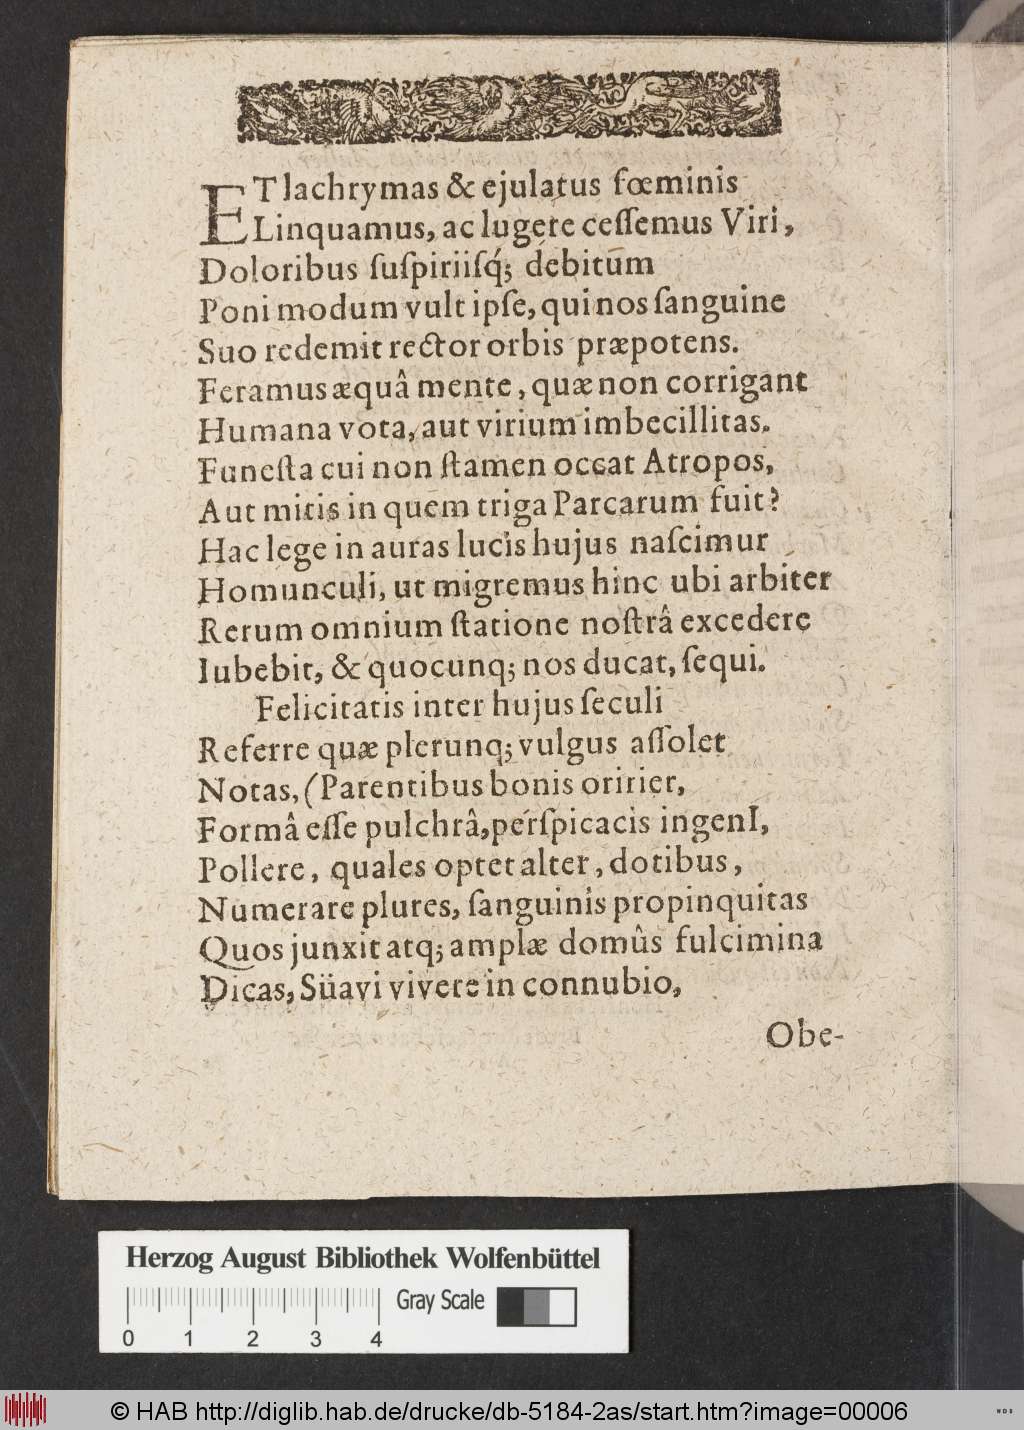 ET lachrymas & ejulatus fœminis
Linquamus, ac lugere ceſſemus Viri,
Doloribus ſuſpiriiſq́; debitum
Poni modum vult ipſe, qui nos ſanguine
Suo redemit rector orbis præpotens.
Feramus æquâ mente, quæ non corrigant
Humana vota, aut virium imbecillitas.
Funeſta cui non ſtamen occat Atropos,
Aut mitis in quem triga Parcarum fuit?
Hac lege in auras lucis hujus naſcimur
Homunculi, ut migremus hinc ubi arbiter
Rerum omnium ſtatione noſtrâ excedere
Iubebit, & quocunq; nos ducat, ſequi.
Felicitatis inter hujus ſeculi
Referre quæ plerunq; vulgus aſſolet
Notas, (Parentibus bonis oririer,
Formâ eſſe pulchrâ, perſpicacis ingenI,
Pollere, quales optet alter, dotibus,
Numerare plures, ſanguinis propinquitas
Quos junxit atq; amplæ domûs fulcimina
Dicas, Süavi vivere in connubio,
Obe-
Herzog August Bibliothek Wolfenbüttel
Gray Scale
0 1 2 3 4
© HAB http://diglib.hab.de/drucke/db-5184-2as/start.htm?image=00006
WDB